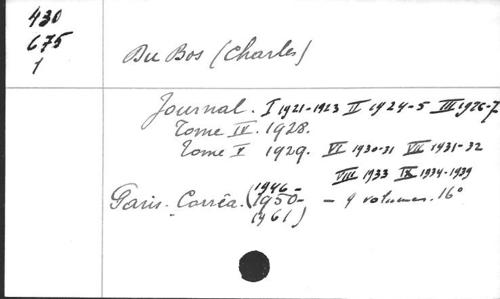 430
675
1
Du Bos (Charles)
Journal. I 1921-1923 II 1924-5 III 1926-7
Tome IV. 1928.
Tome V 1929. VI 1930-31 VII 1931-32
VIII 1933 IX 1934-1939
Paris. Corrêa. (1946-
1950-
1961) - 9 volumes. 16°